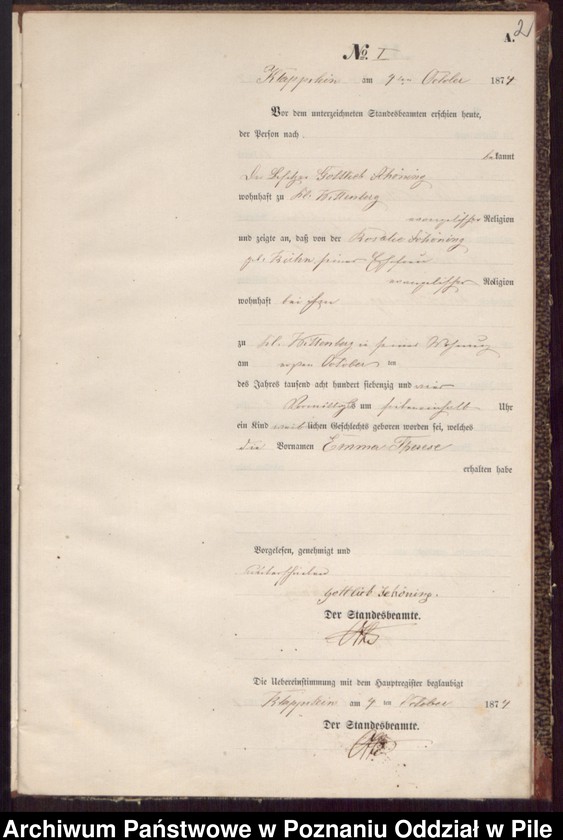 2
A.
No. 1
Klappstein am 4ten October 1874
Vor dem unterzeichneten Standesbeamten erschien heute,
der Person nach
bekannt
Der Besitzer Gottlieb Schöning
wohnhaft zu Kl. Wittenberg
evangelischer Religion
und zeigte an, daß von der Rosalie Schöning
geb. seiner Ehefrau
evangelischer Religion
wohnhaft bei ihm
zu Kl. Wittenberg in seiner Wohnung
am October ten
des Jahres tausend acht hundert siebenzig und vier
Vormittags um siebeneinhalb Uhr
ein Kind weiblichen Geschlechts geboren worden sei, welches
die Vornamen Emma Therese
erhalten habe
Vorgelesen, genehmigt und
unterschrieben
Gottlieb Schöning.
Der Standesbeamte.
Die Uebereinstimmung mit dem Hauptregister beglaubigt
Klappstein am 4 ten October 1874
Der Standesbeamte.
Archiwum Państwowe w Poznaniu Oddział w Pile